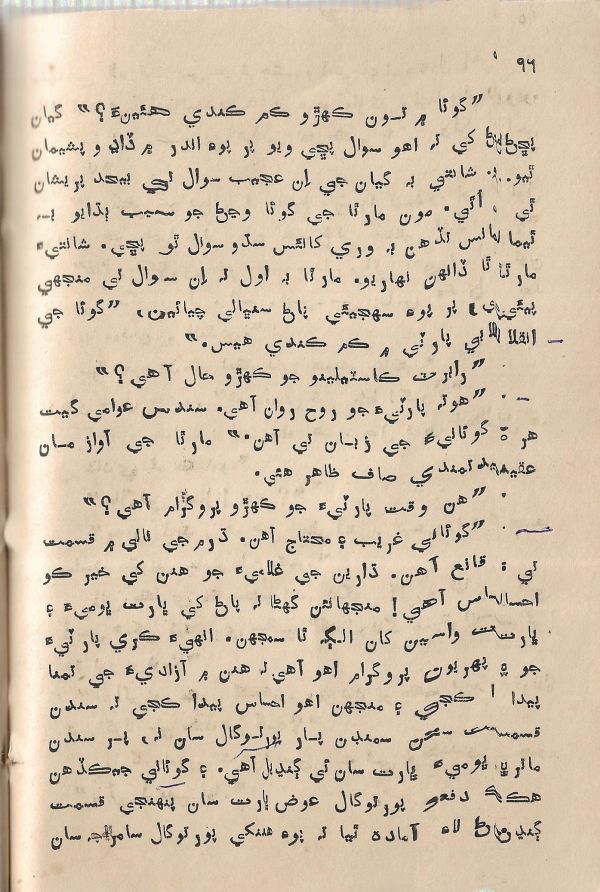 ۹٦
”گوئا ۾ تــون ڪهڙو ڪم ڪندي هئينءَ؟“ گيان
پڇڻ کي ته اهو سوال پڇي ويو پر پوءِ اندر ۾ ڏاڍو پشيمان
ٿيو. شانتي به گيان جي اِن عجيب سوال تي بيحد پريشان
ٿي اُٿي. مون مارٿا جي گوئا وڃڻ جو سبب ٻڌايو
تڏهن به وري کائنس سڌو سوال ٿو پڇي. شانتيءَ
مارٿا ڏانهن نهاريو. مارٿا به اول ته اِن سوال تي منجهي
پيئي، پر پوءِ سهجيئي پاڻ سنڀالي چيائين، ”گوئا جي
انقلابي پارٽي ۾ ڪم ڪندي هيس.“
”رابرٽ ڪاسٽيلينو جو ڪهڙو حال آهي؟“
”هو ته پارٽيءَ جو روح روان آهي. سندس عوامي گيت
هر گوئاليءَ جي زبــان تي آهن.“ مارٿا جي آواز مــان
عقيدتمندي صاف ظاهر هئي.
”هن وقت پارٽيءَ جو ڪهڙو پروگرام آهي؟“
”گوئالي غريب ۽ محتاج آهن. ڌرم جي نالي ۾ قسمت
تي قانع آهن. ڌارين جي غلاميءَ جو هنن کي خير ڪو
احساس آهي! منجهانئن گهڻا ته پاڻ کي ڀارت ڀوميءَ ۽
ڀارت واسين کان الڳ ٿا سمجهن. انهيءَ ڪري پارٽيءَ
جو پهريون پروگرام اهو آهي ته هنن ۾ آزاديءَ جي تمنا
پيدا ڪجي ۽ منجهن اهو احساس پيدا ڪجي ته سندن
قسمت سمنڊن پــار پورٽوگال سان نه، پــر سندن
ماتر ڀوميءَ ڀارت سان ئي ڳنڍيل آهي. ۽ گوئالي جيڪڏهن
هڪ دفعو پورٽوگال عوض ڀارت سان پنهنجي قسمت
ڳنڍڻ لاءِ آماده ٿيا ته پوءِ هنن کي پورٽوگال سامراج سان